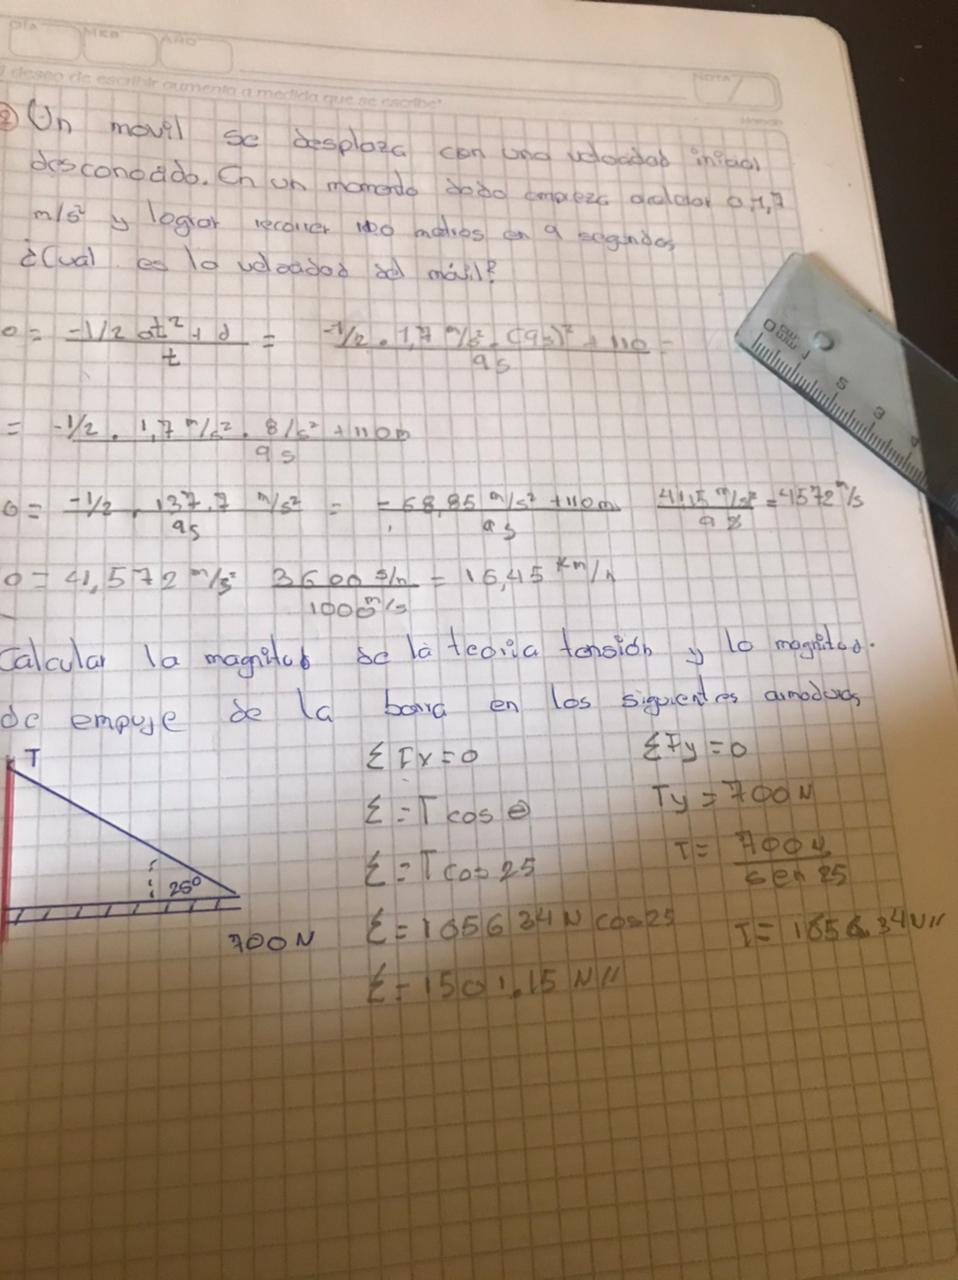 DÍA MES AÑO
deseo de escribir aumenta a medida que se escribe
NOTA
② Un movil se desplaza con una velocidad inicial
desconocido. En un momento dado empieza acelerar 0,1,7
m/s² y lograr recorrer 110 metros en 9 segundos
¿Cual es la velocidad del móvil?
0 = -1/2 at² + d / t = -1/2 . 1,7 m/s² . (9s)² + 110 / 9s =
= -1/2 . 1,7 m/s² . 8/s² + 110m / 9s
0 = -1/2 . 137.7 m/s² / 9s = -68,85 m/s² + 110m / 9s 41,5 m/s² / 9s = 4572 m/s
0 = 41,572 m/s² 3600 s/h / 1000 m/s = 16,45 Km/h
Calcular la magnitud de la teoria tensión y la magnitud.
de empuje de la barra en los siguientes armaduras
T
25°
700N
Σ Fx = 0
Σ = T cos θ
Σ = T cos 25
Σ = 165634N cos25
Σ = 1501.15 N//
Σ Fy = 0
Ty = 700N
T = 700N / sen 25
T = 1656.34N//